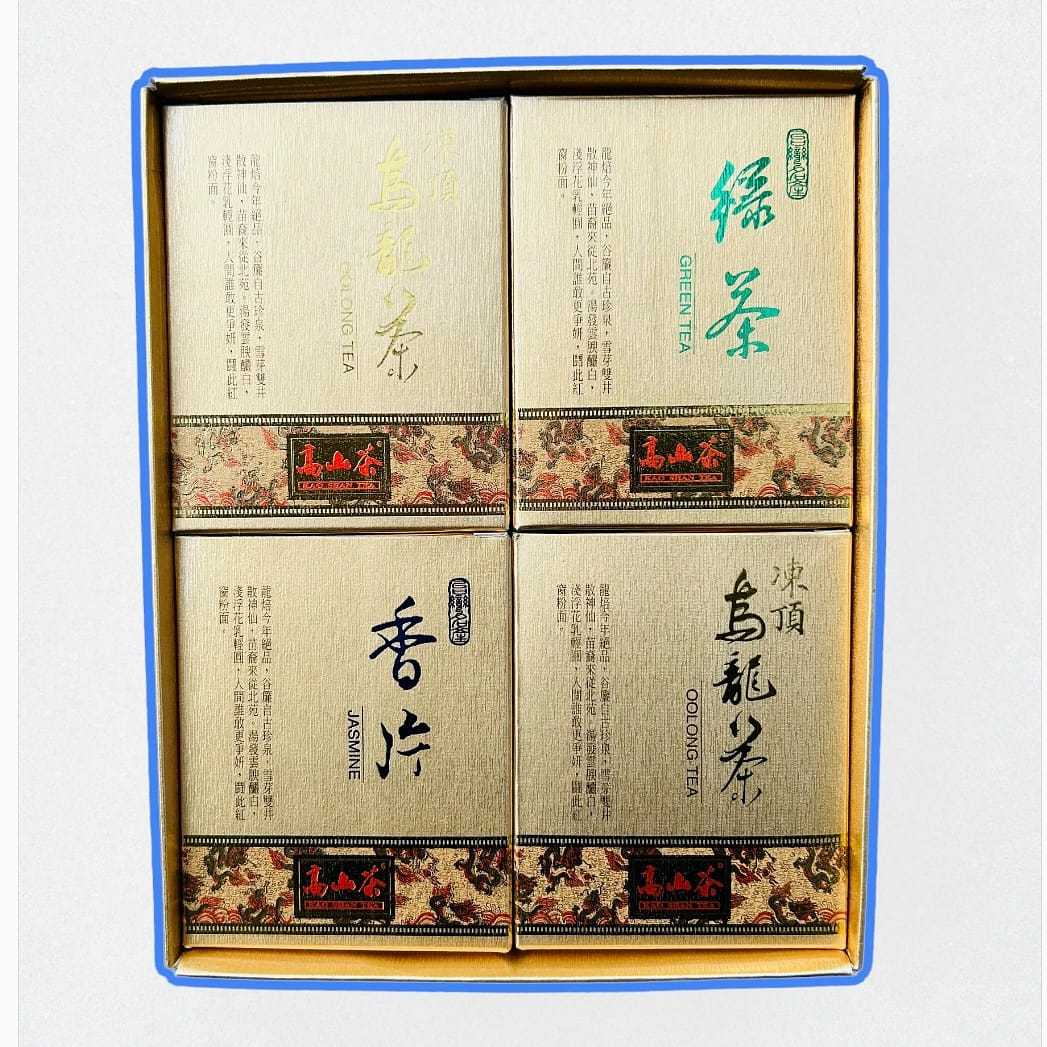 凍頂
烏龍茶
OOLONG TEA
龍焙今年絕品，谷簾自古珍泉，雪芽雙井
散神仙，苗裔來從北苑。湯發雲腴釅白，
淺浮花乳輕圓，人間誰敢更爭妍，鬪此紅
窗粉面。
高山茶
KAO SHAN TEA
綠茶
GREEN TEA
龍焙今年絕品，谷簾自古珍泉，雪芽雙井
散神仙，苗裔來從北苑。湯發雲腴釅白，
淺浮花乳輕圓，人間誰敢更爭妍，鬪此紅
窗粉面。
高山茶
KAO SHAN TEA
香片
JASMINE
龍焙今年絕品，谷簾自古珍泉，雪芽雙井
散神仙，苗裔來從北苑。湯發雲腴釅白，
淺浮花乳輕圓，人間誰敢更爭妍，鬪此紅
窗粉面。
高山茶
KAO SHAN TEA
凍頂
烏龍茶
OOLONG TEA
龍焙今年絕品，谷簾自古珍泉，雪芽雙井
散神仙，苗裔來從北苑。湯發雲腴釅白，
淺浮花乳輕圓，人間誰敢更爭妍，鬪此紅
窗粉面。
高山茶
KAO SHAN TEA